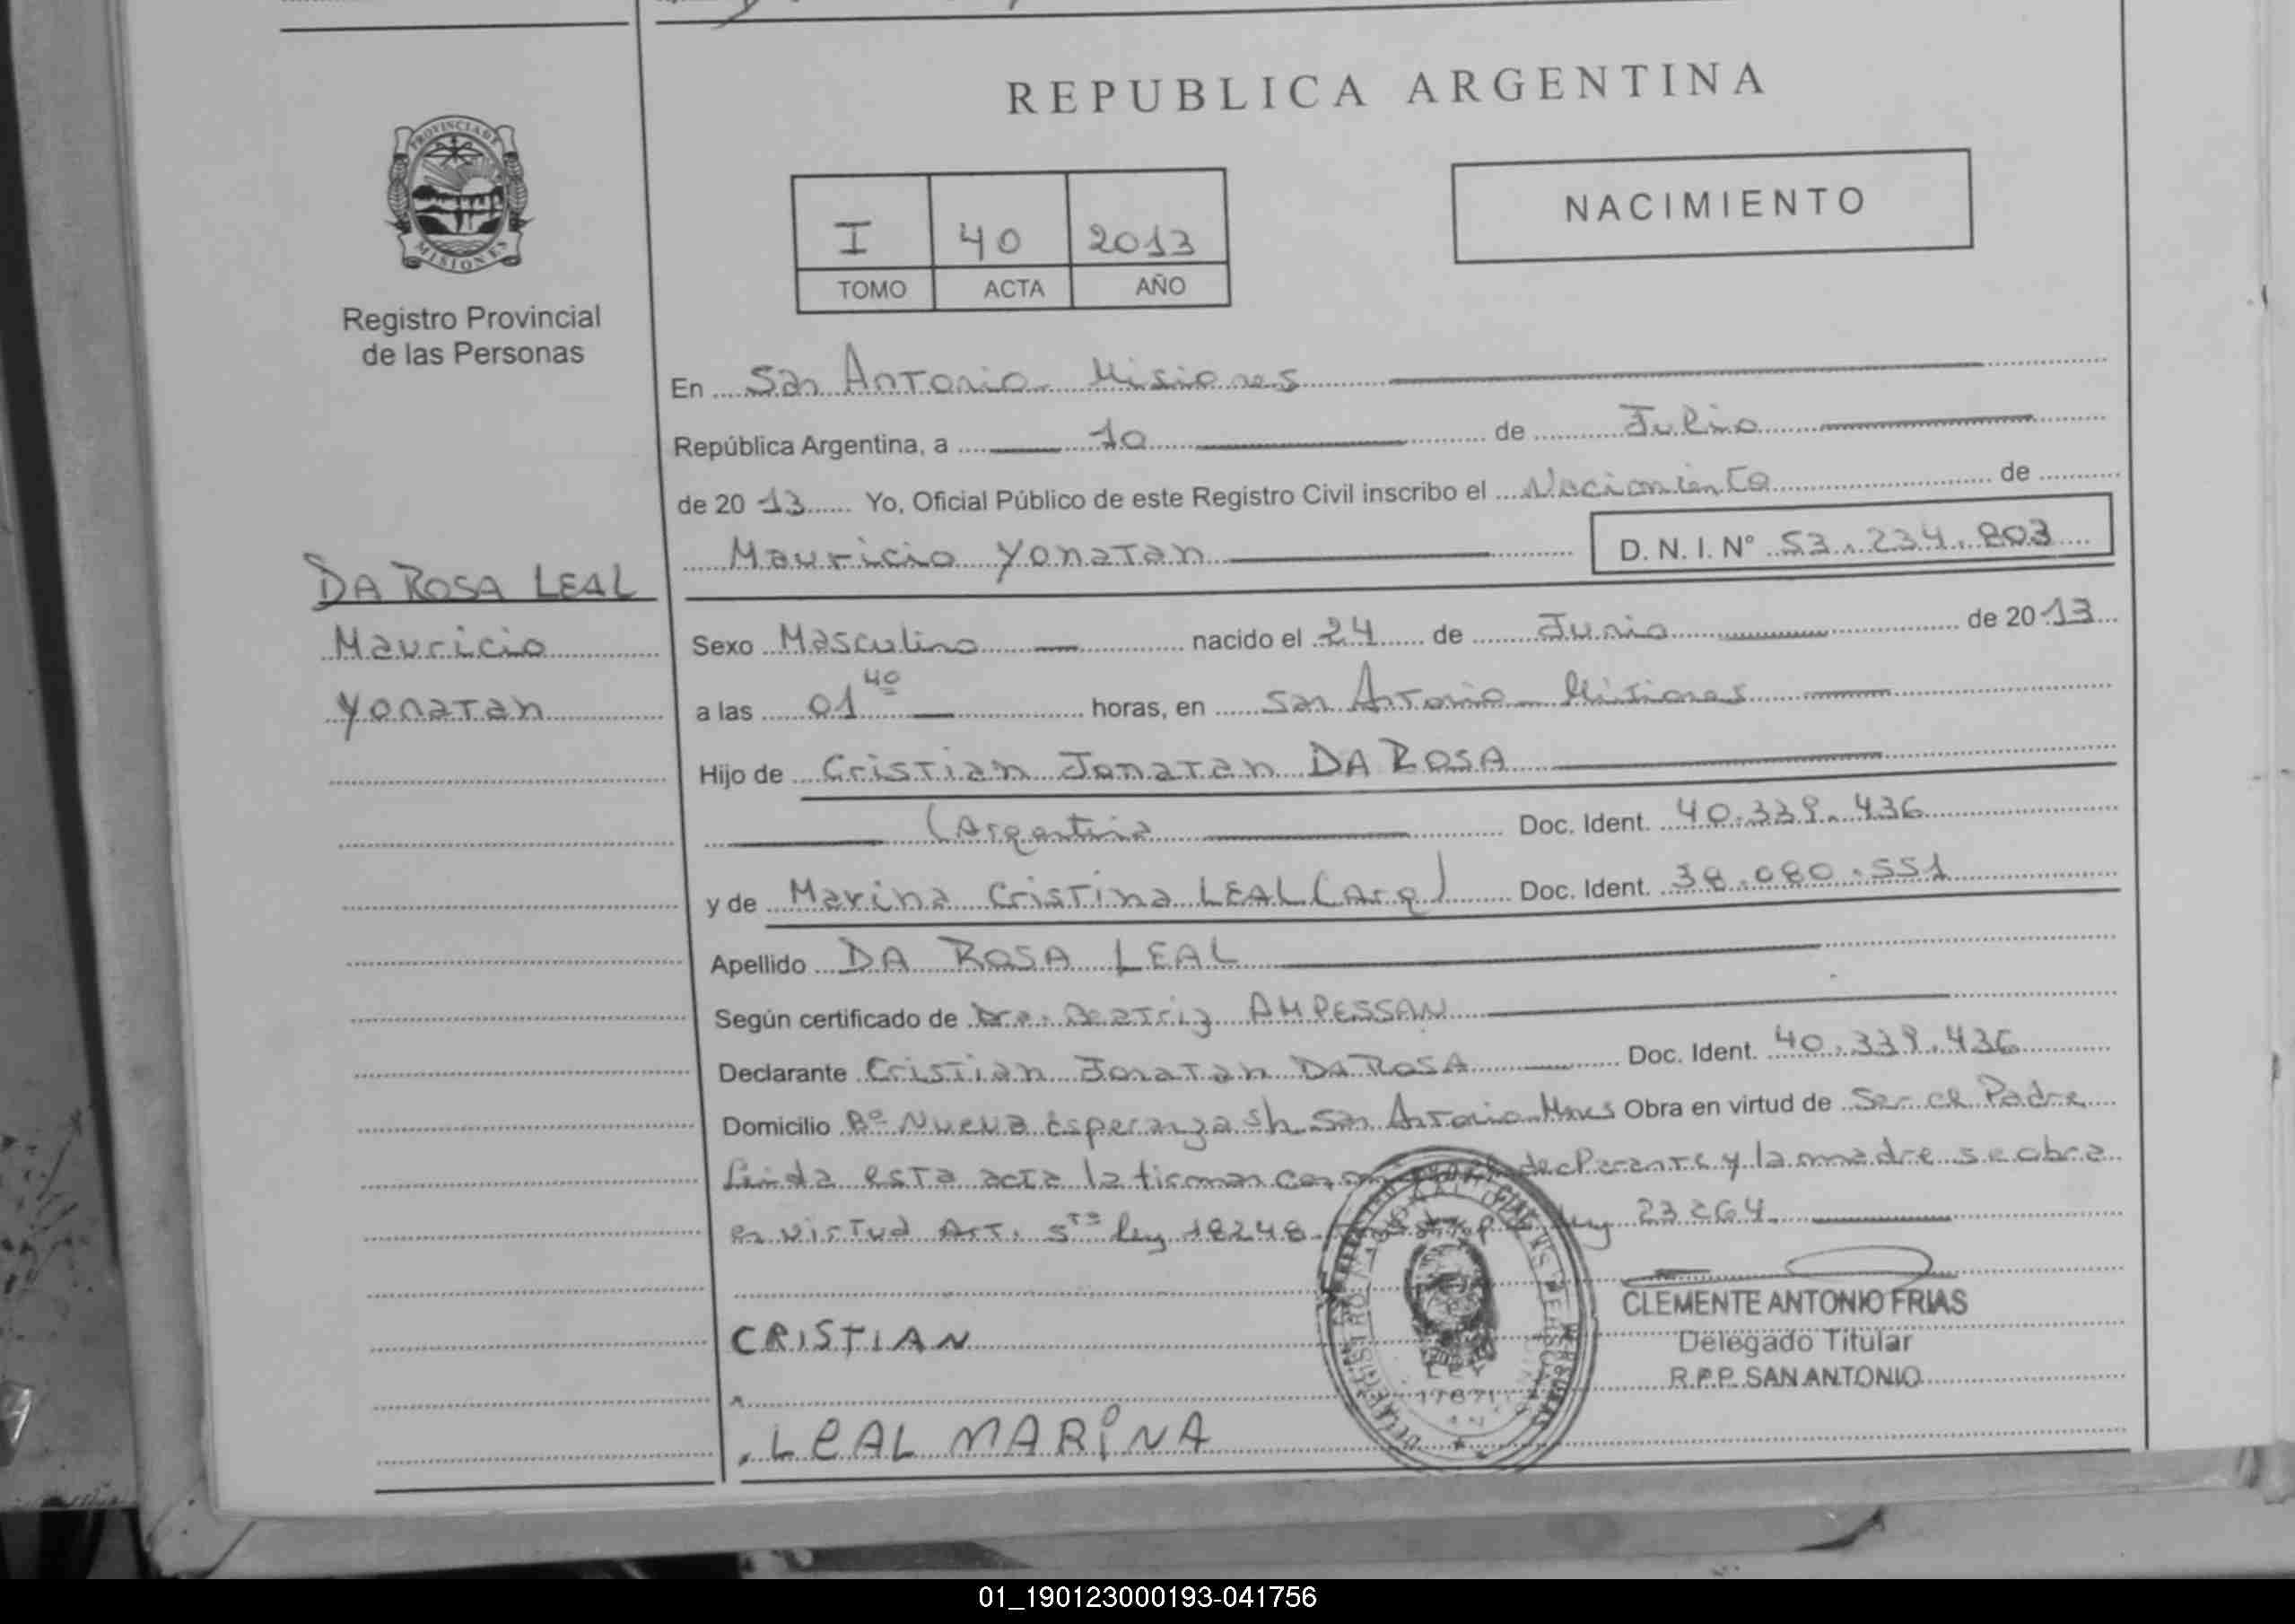 REPUBLICA ARGENTINA
PROVINCIA DE
MISIONES
Registro Provincial
de las Personas
NACIMIENTO
I 40 2013
TOMO ACTA AÑO
En San Antonio Misiones
República Argentina, a 10 de Julio
de 2013 Yo, Oficial Público de este Registro Civil inscribo el Nacimiento de
Mauricio Yonatan D. N. I. Nº 53.234.803
DA ROSA LEAL
Mauricio
Yonatan
Sexo Masculino nacido el 24 de Junio de 2013
a las 01 40 horas, en San Antonio Misiones
Hijo de Cristian Jonatan DA ROSA
(Argentina Doc. Ident. 40.339.436
y de Marina Cristina LEAL (Arg) Doc. Ident. 38.080.551
Apellido DA ROSA LEAL
Según certificado de Dra. Beatriz AMPESSAN
Declarante Cristian Jonatan DA ROSA Doc. Ident. 40.339.436
Domicilio Bº Nueva Esperanza s/n San Antonio Mnes Obra en virtud de Ser el Padre
Leida esta acta la firman declarante y la madre se obra
en virtud Art. 5to ley 18248 ley 23264
CRISTIAN
LEAL MARINA
CLEMENTE ANTONIO FRIAS
Delegado Titular
R.P.P. SAN ANTONIO
LEY
17671
01_190123000193-041756